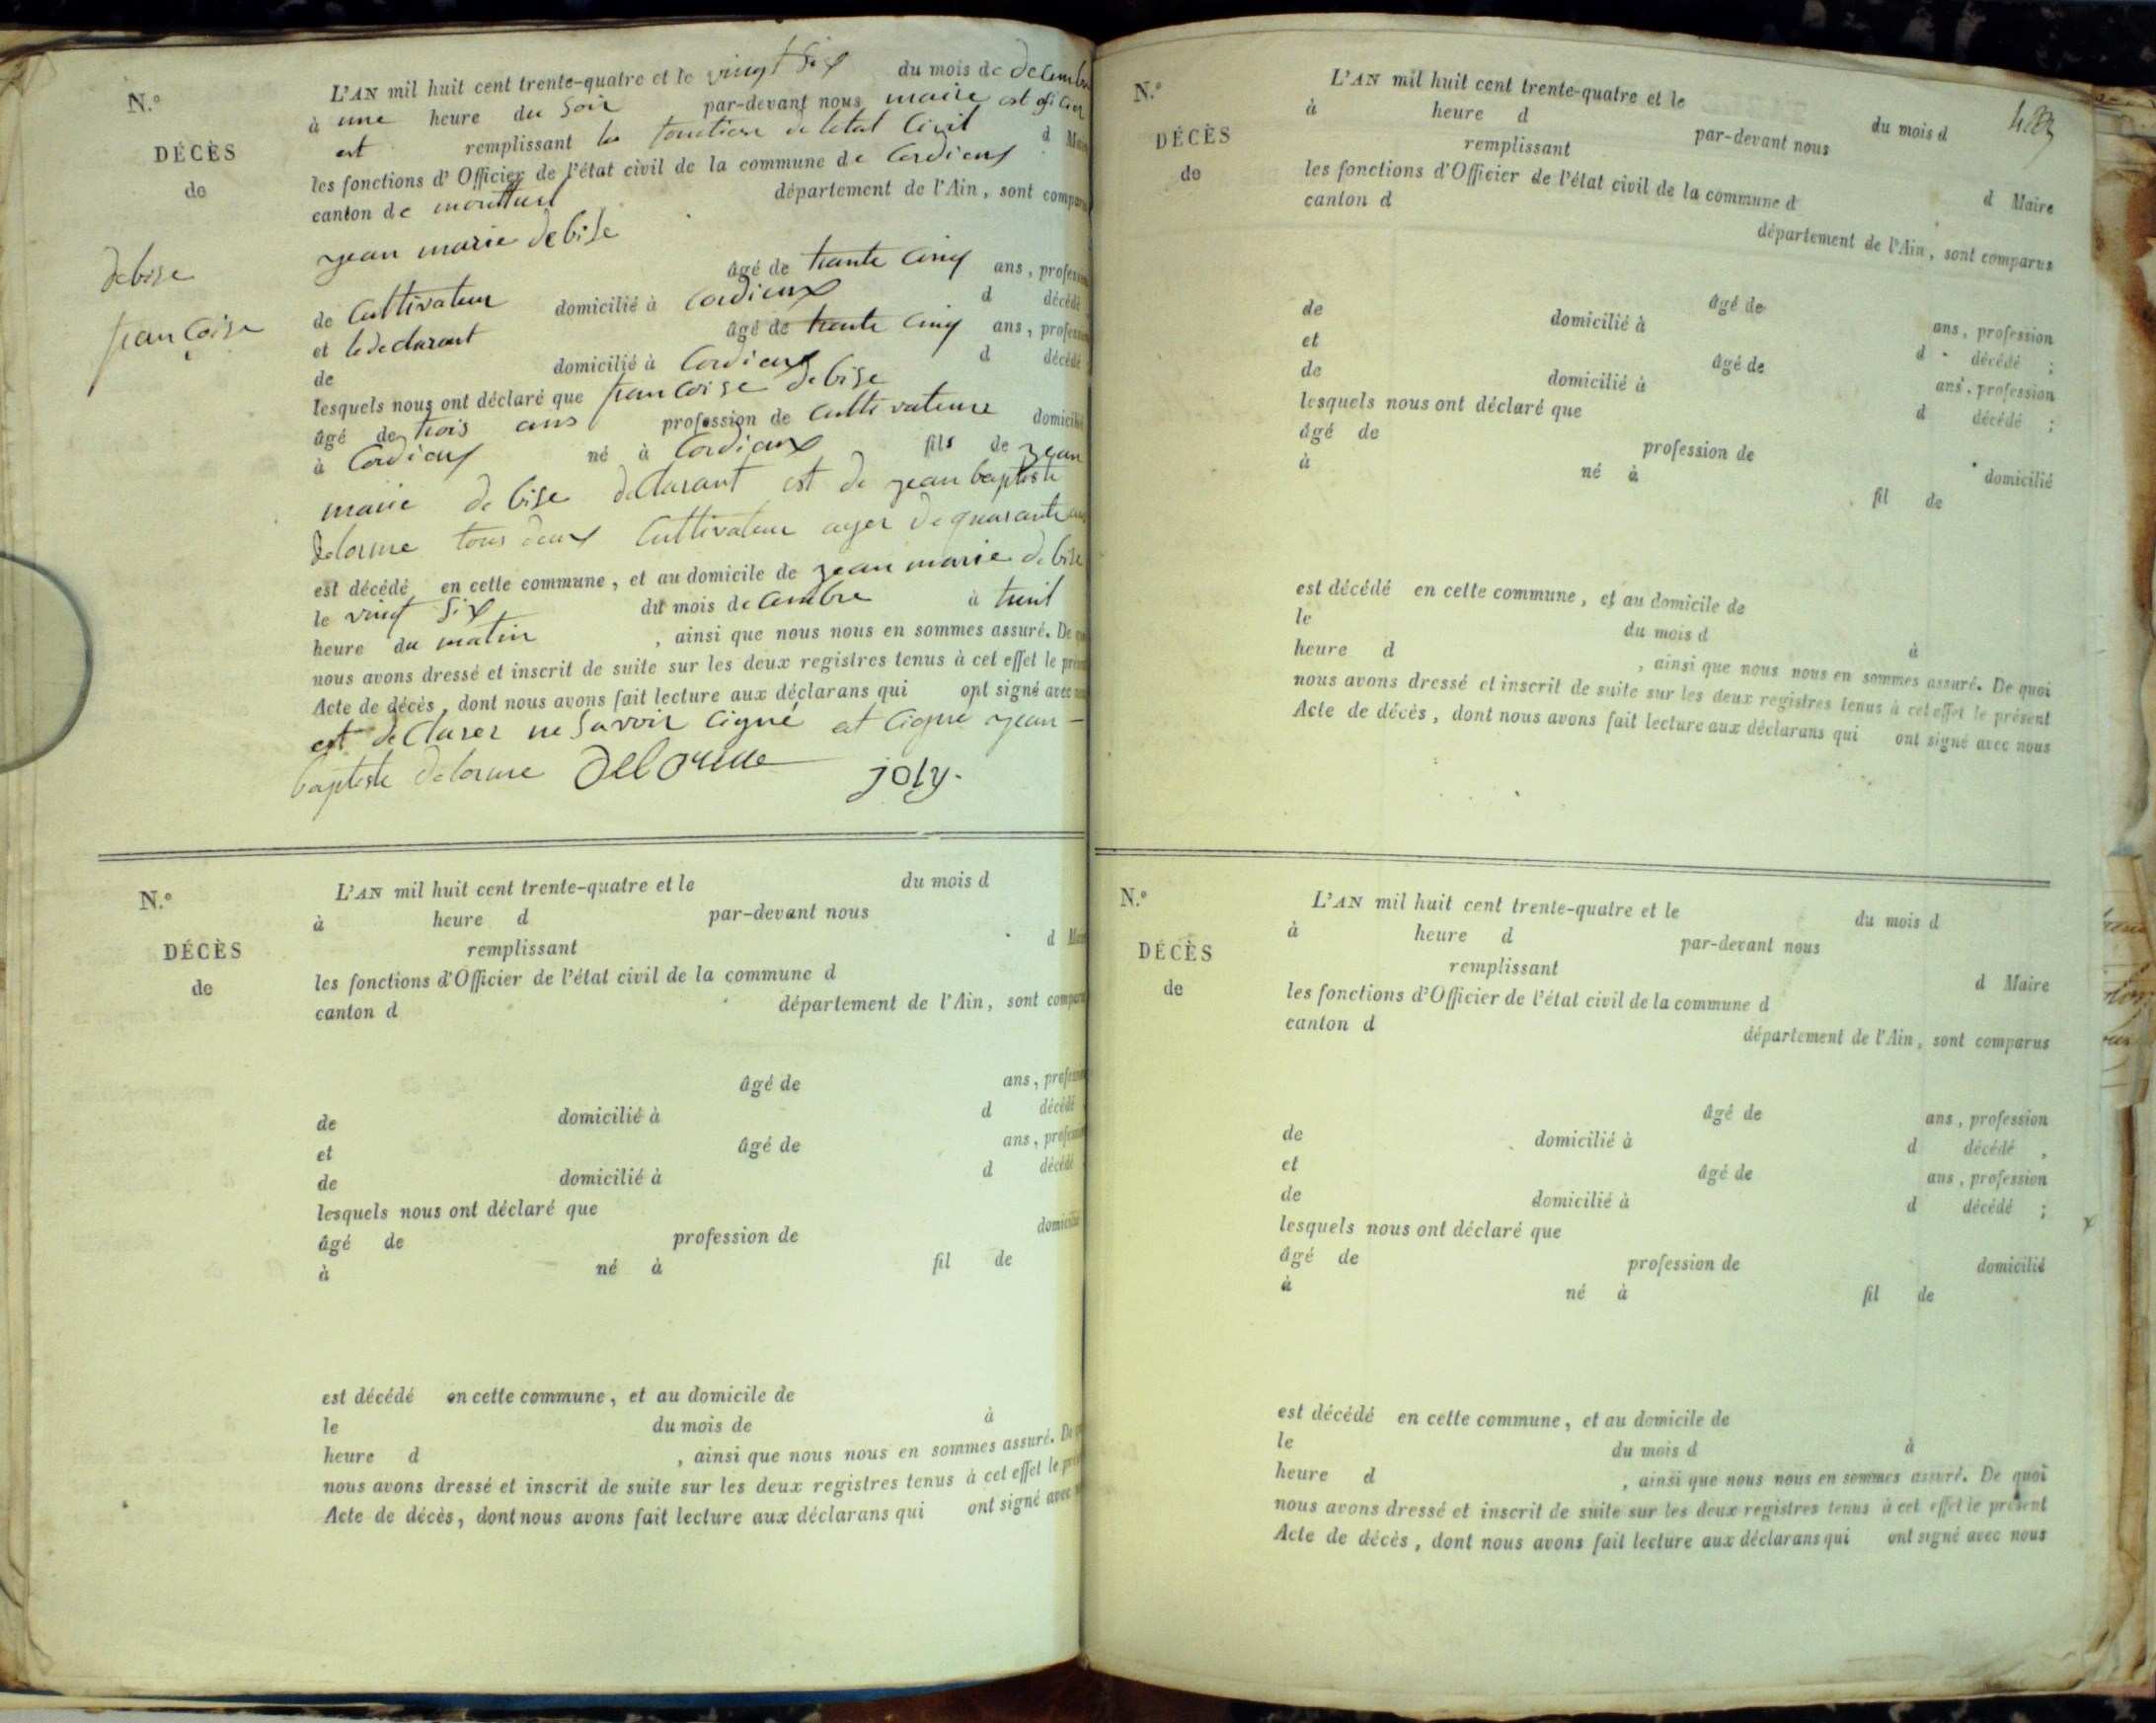 N.º
DÉCÈS
de
debise
francoise
L'AN mil huit cent trente-quatre et le vingt six du mois de decembre
à une heure du soir par-devant nous maire est oficier
est remplissant les fonction de letat Civil d Maire
les fonctions d'Officier de l'état civil de la commune de Cordieux
canton de montluel département de l'Ain, sont comparus
jean marie debise
âgé de trante cinq ans, profession
de Cultivateur domicilié à Cordieux d décédé
et le declarant âgé de trante cinq ans, profession
de domicilié à Cordieux d décédé
lesquels nous ont déclaré que francoise debise
âgé de trois ans profession de cultivateure domicilié
à Cordieux né à Cordieux fils de jean
marie debise declarant est de jean baptiste
delorme tous deux Cultivateur ager de quarante ans
est décédé en cette commune, et au domicile de jean marie debise
le vingt six du mois decembre à huit
heure du matin , ainsi que nous nous en sommes assuré. De quoi
nous avons dressé et inscrit de suite sur les deux registres tenus à cet effet le présent
Acte de décès, dont nous avons fait lecture aux déclarans qui ont signé avec nous
est declarer ne savoir signé et signé jean
baptiste delorme Delorme joly.
N.º
DÉCÈS
de
L'AN mil huit cent trente-quatre et le du mois d
à heure d par-devant nous
remplissant d Maire
les fonctions d'Officier de l'état civil de la commune d
canton d département de l'Ain, sont comparus
âgé de ans, profession
de domicilié à d décédé
et âgé de ans, profession
de domicilié à d décédé
lesquels nous ont déclaré que
âgé de profession de domicilié
à né à fil de
est décédé en cette commune, et au domicile de
le du mois de à
heure d , ainsi que nous nous en sommes assuré. De quoi
nous avons dressé et inscrit de suite sur les deux registres tenus à cet effet le présent
Acte de décès, dont nous avons fait lecture aux déclarans qui ont signé avec nous
N.º
DÉCÈS
de
L'AN mil huit cent trente-quatre et le du mois d
à heure d par-devant nous
remplissant d Maire
les fonctions d'Officier de l'état civil de la commune d
canton d département de l'Ain, sont comparus
âgé de ans, profession
de domicilié à d décédé ;
et âgé de ans, profession
de domicilié à d décédé ;
lesquels nous ont déclaré que
âgé de profession de domicilié
à né à fil de
est décédé en cette commune, et au domicile de
le du mois d à
heure d , ainsi que nous nous en sommes assuré. De quoi
nous avons dressé et inscrit de suite sur les deux registres tenus à cet effet le présent
Acte de décès, dont nous avons fait lecture aux déclarans qui ont signé avec nous
N.º
DÉCÈS
de
L'AN mil huit cent trente-quatre et le du mois d
à heure d par-devant nous
remplissant d Maire
les fonctions d'Officier de l'état civil de la commune d
canton d département de l'Ain, sont comparus
âgé de ans, profession
de domicilié à d décédé ,
et âgé de ans, profession
de domicilié à d décédé ;
lesquels nous ont déclaré que
âgé de profession de domicilié
à né à fil de
est décédé en cette commune, et au domicile de
le du mois d à
heure d , ainsi que nous nous en sommes assuré. De quoi
nous avons dressé et inscrit de suite sur les deux registres tenus à cet effet le présent
Acte de décès, dont nous avons fait lecture aux déclarans qui ont signé avec nous